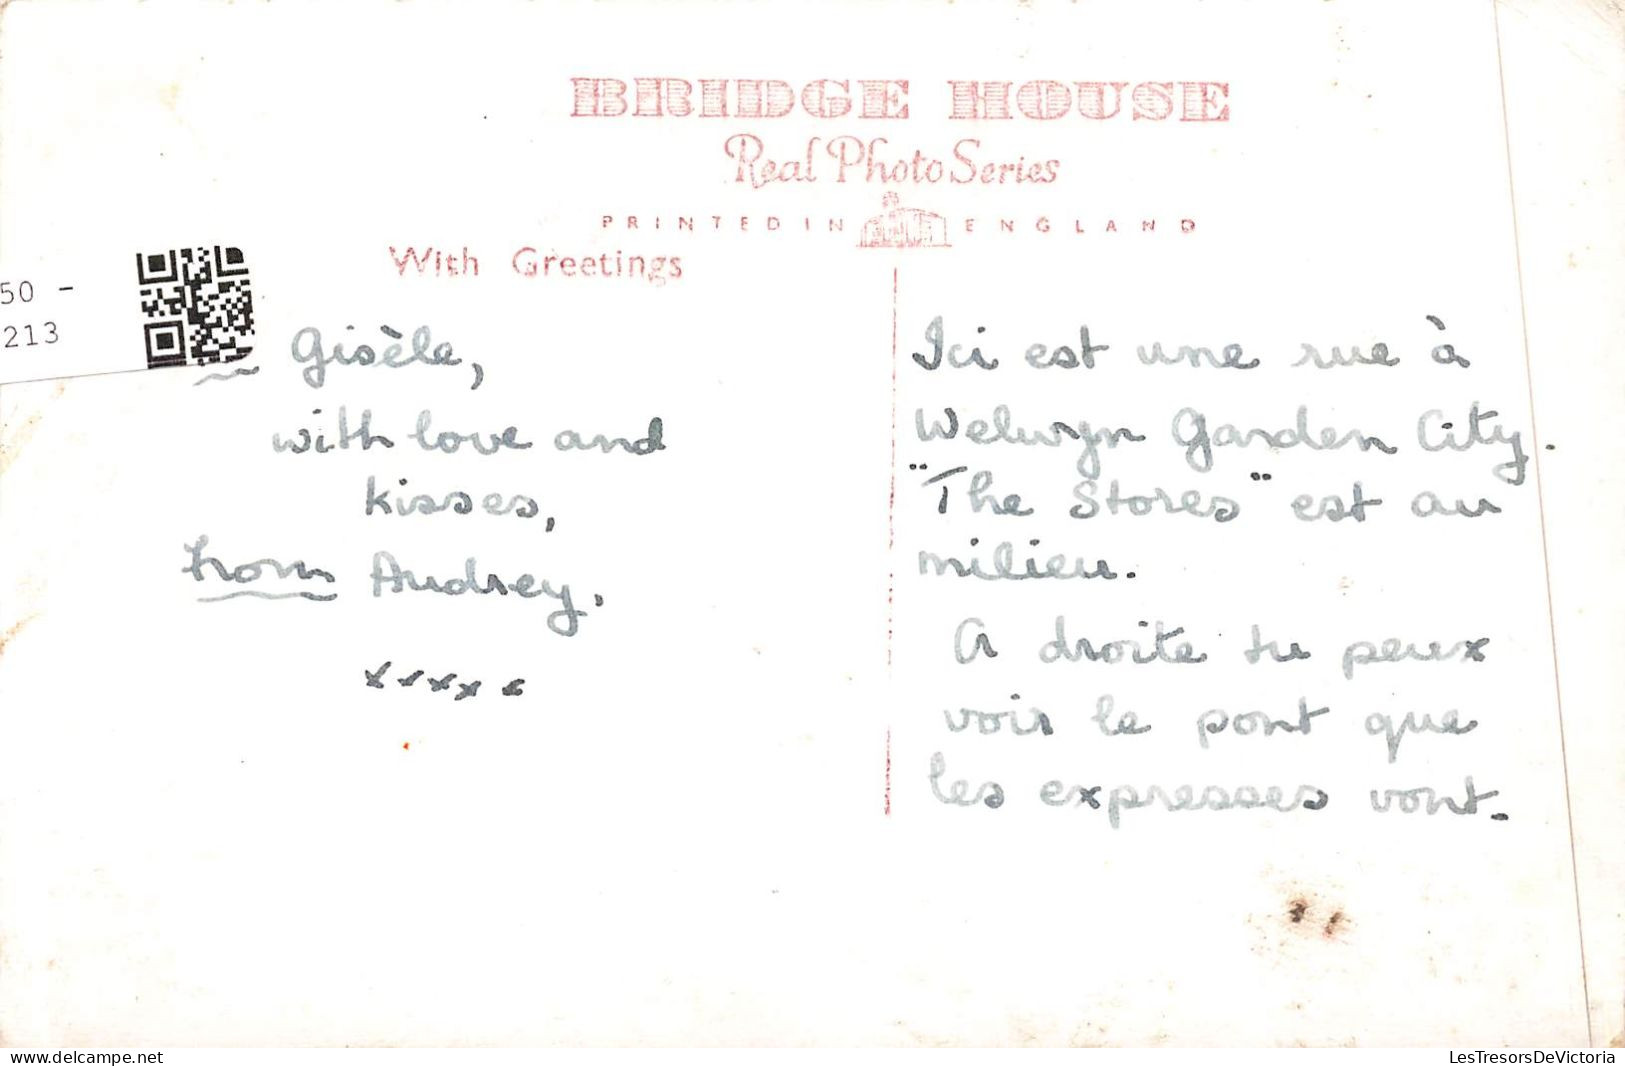 BRIDGE HOUSE
Real Photo Series
PRINTED IN ENGLAND
With Greetings
50 -
213
Gisèle,
with love and
kisses,
from Audrey.
xxxxx
Ici est une rue à
Welwyn Garden City.
"The Stores" est au
milieu.
A droite tu peux
voir le pont que
les expresses vont.
delcampe.net
LesTresorsDeVictoria